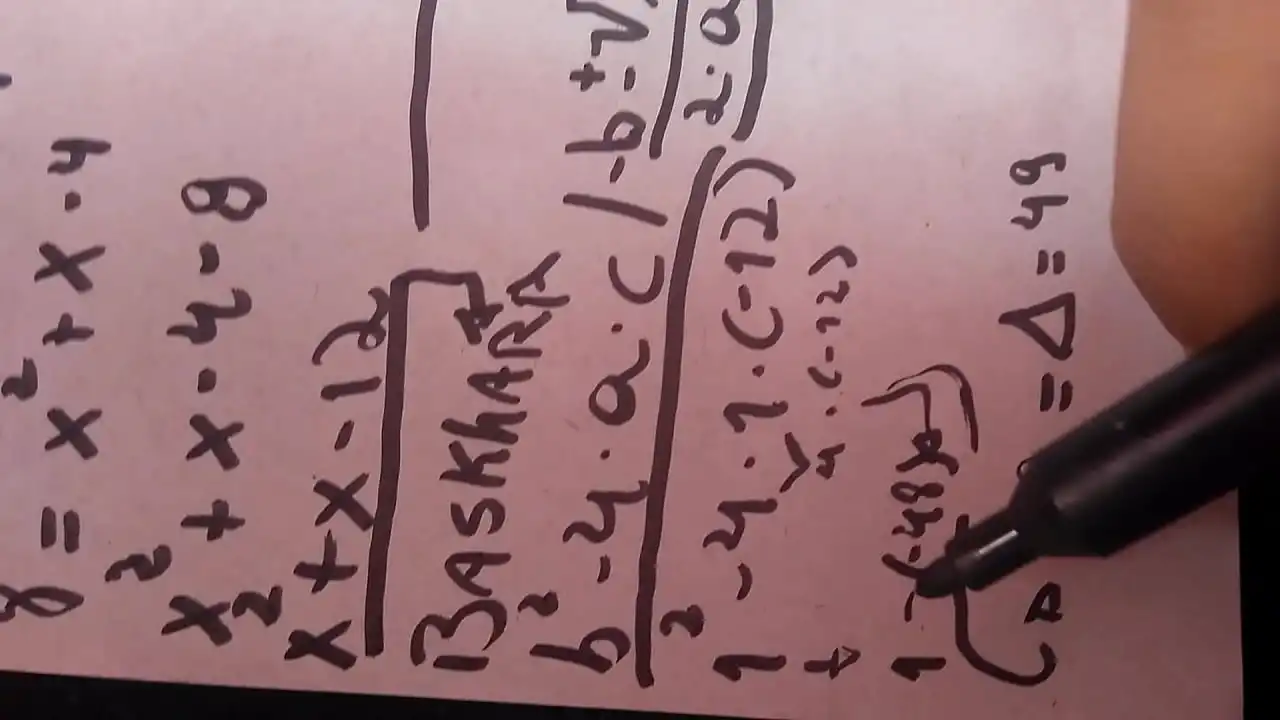 8 = x² + x - 4
x² + x - 4 - 8
x² + x - 12
BASKhARA
b² - 4 . a . c / -b ± √
2 . a
1² - 4 . 1 . (-12)
4 . (-12)
1 - (-48)
= Δ = 49